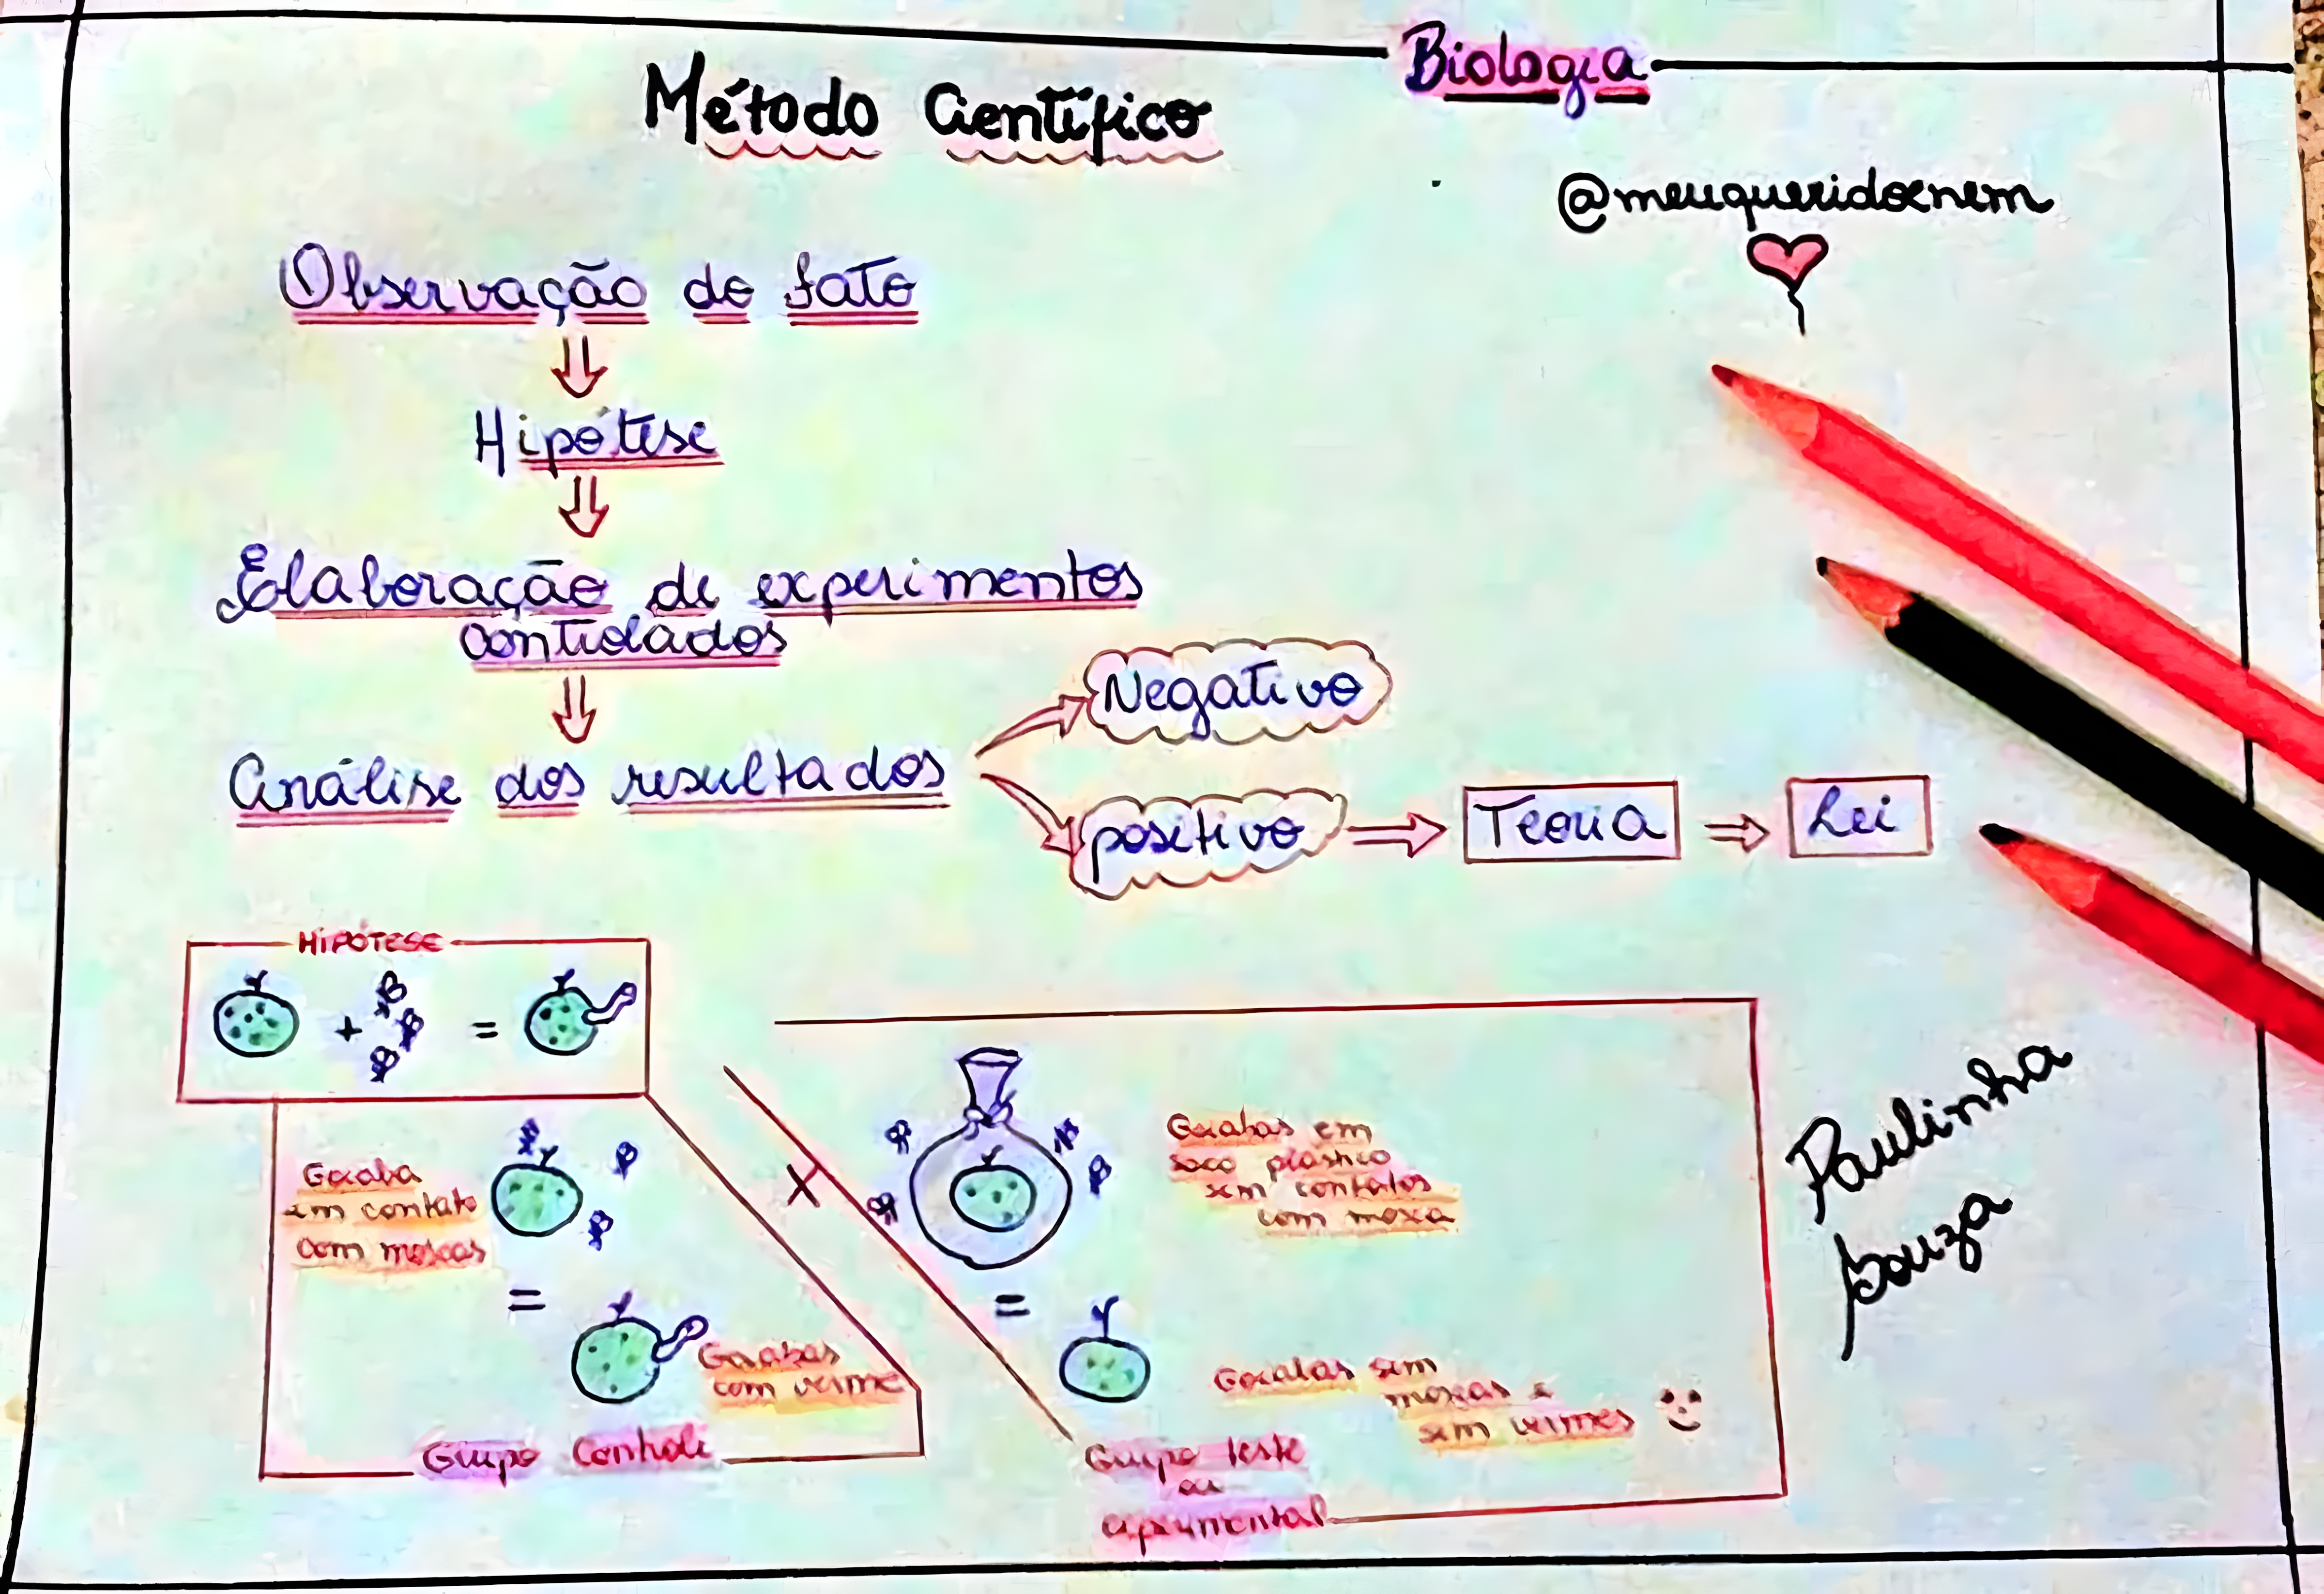 Biologia
Método Científico
@meuqueridoenem
Observação do fato
Hipótese
Elaboração de experimentos
controlados
Negativo
Análise dos resultados
positivo
Teoria
Lei
HIPÓTESE
+ =
Goiaba
em contato
com moscas
=
Goiabas
com verme
Grupo Controle
X
Goiabas em
saco plástico
sem contatos
com mosca
=
Goiabas sem
moscas e
sem vermes
Grupo teste
ou
experimental
Paulinha
Souza